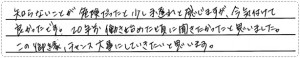 知らないことが普段だったと少し不思議と感じますが、今気付けて
良かったです。10年前働き始めた頃に聞きたかったと思いました。
この御縁、チャンス大事にしていきたいと思います。